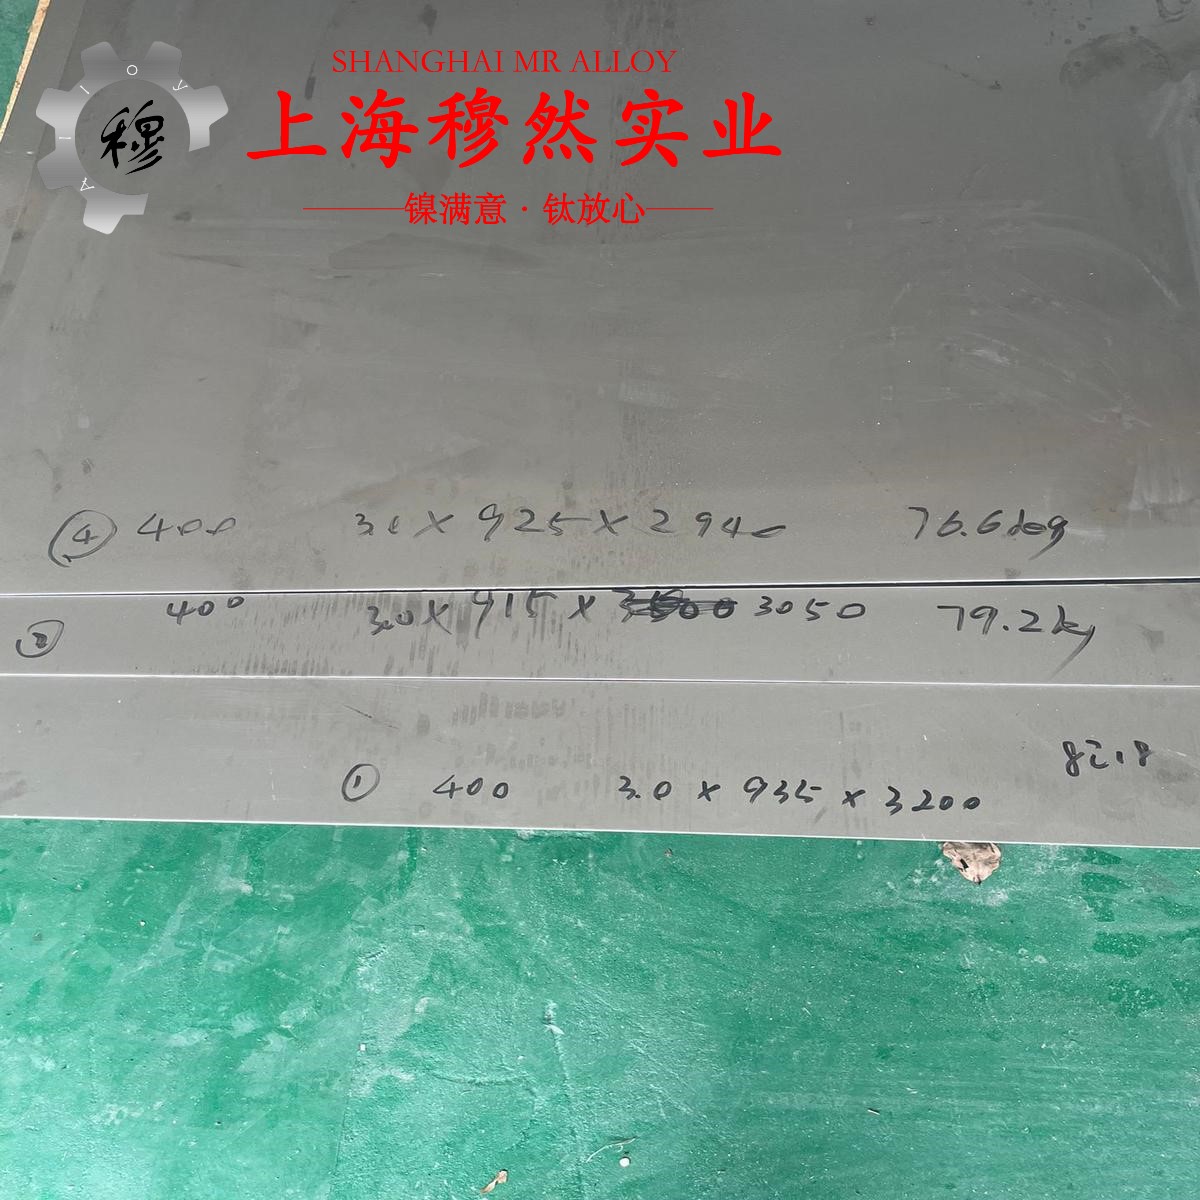 SHANGHAI MR ALLOY
上海穆然实业
穆
ALLOY
镍满意·钛放心
④ 400 3.0×925×2940 76.6kg
② 400 3.0×915×3050 79.2kg
82.8
① 400 3.0×935×3200